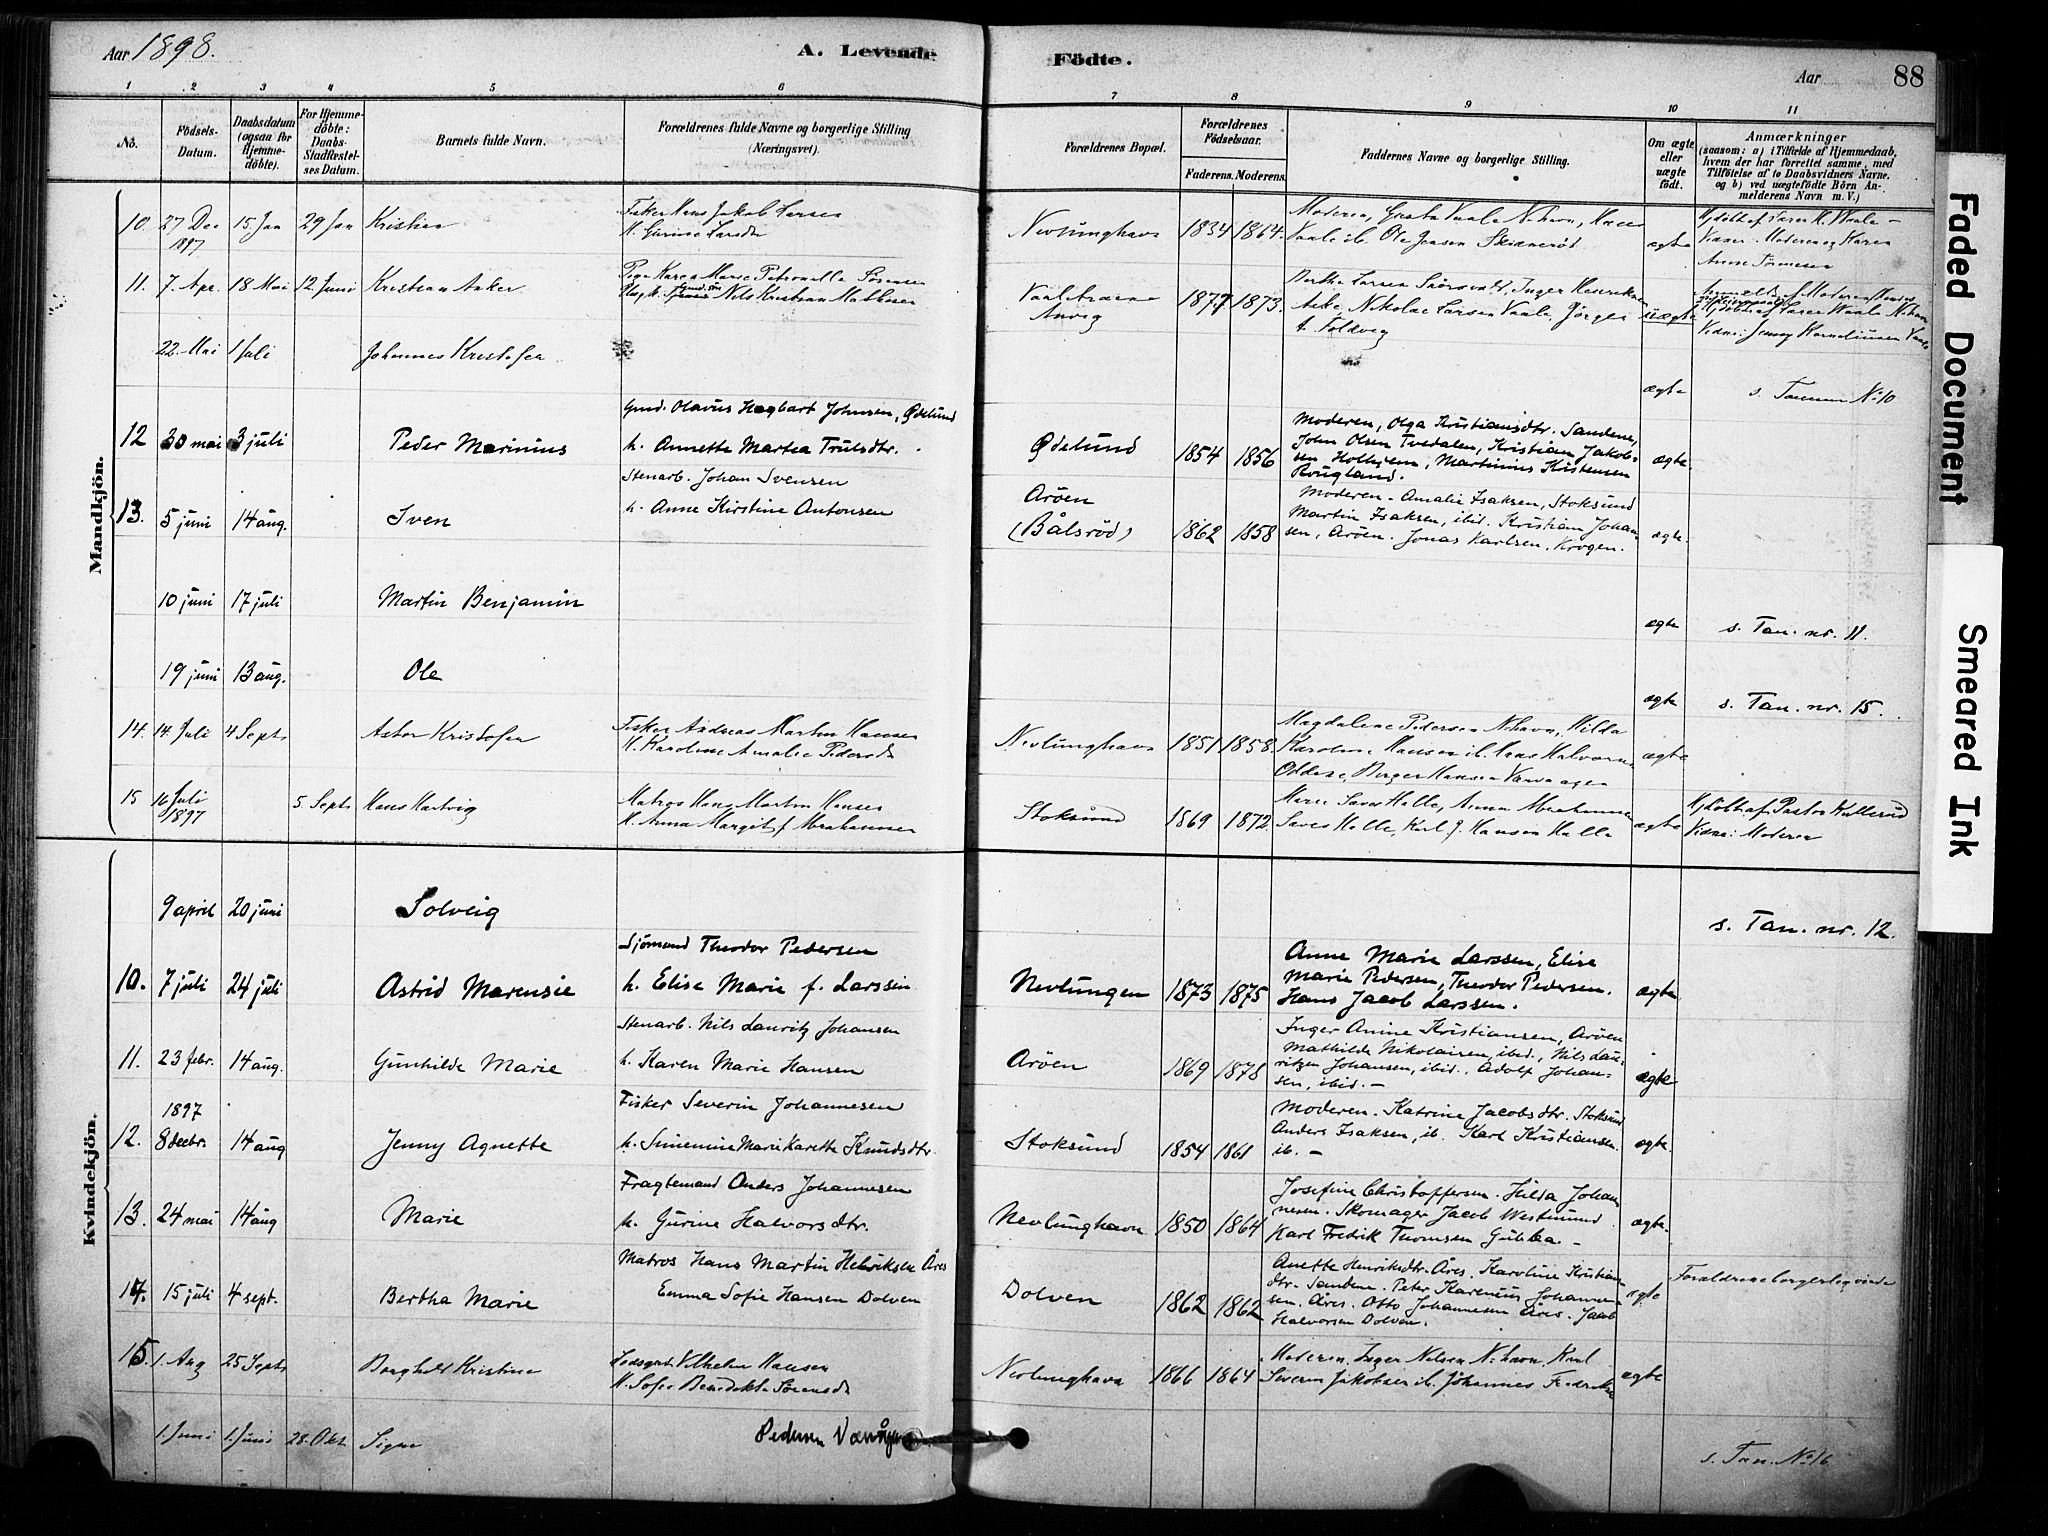 Aar 1898.
A. Levende
Födte.
Aar
88
1 2 3 4 5 6 7 8 9 10 11
No.
Födsels-
Datum.
Daabsdatum
(ogsaa for
Hjemme-
döbte).
For Hjemme-
döbte:
Daabs-
Stadfæstel-
ses Datum.
Barnets fulde Navn.
Forældrenes fulde Navne og borgerlige Stilling
(Næringsvei).
Forældrenes Bopæl.
Forældrenes
Födselsaar.
Faderens. Moderens.
Faddernes Navne og borgerlige Stilling.
Om ægte
eller
uægte
födt.
Anmærkninger
(saasom: a) i Tilfælde af Hjemmedaab,
hvem der har forrettet samme, med
Tilföielse af to Daabsvidners Navne.
og b) ved uægtefödte Börn An-
melderens Navn m. V.)
Mandkjön.
10. 27 Dec 1897 15. Jan 29 Jan Kristian
Fisker Hans Jakob Larsen
H. Gurine Larsdr
Nevlunghavn 1834 1864.
Moderen, N. havn, Hans
Vaale ib. Ole Jensen
ægte
11. 7. Apr. 18 Mai 12 Juni Kristian Anker
Pige Karen Marie Petronelle Sörensen
Nils Kristian Mathisen
1877 1873.
Nikolai Larsen Vaale, Jörgen
uægte
22. Mai 1 Juli Johannes Kristofer
ægte s. Tanum No 10
12 30 mai 3 juli Peder Marinius
Gmd. Olavus Hagbart Johnsen, Ödelund
h. Annette Martea Trulsdtr.
Ödelund 1854 1856
Moderen, Olga Kristiansdtr. Sandene,
John Olsen Tvedalen, Kristian Jakob-
sen Holhjem, Martinius Kristensen
Rougland.
ægte
13. 5 juni 14 aug. Iven
Stenarb. Johan Svensen
h. Anne Kirstine Antonsen
Aröen
(Bålsröd) 1862 1858
Moderen - Amalie Isaksen, Stoksund
Martin Isaksen, ibid. Kristian Johan-
sen, Aröen. Jonas Karlsen, Krogen.
ægte.
10 juni 17 juli Martin Benjamin
ægte s. Tan. nr. 11.
19 juni 13 aug. Ole
ægte s. Tan. nr. 15.
14. 14. Juli 4 Septr Astor Kristofer
Fisker Andreas Martin Hansen
H. Karoline Amalie Pedersdr
Nevlunghavn 1851 1858.
Magdalene Pedersen N. havn, Hilda
Karoline Hansen ib. Hans Halvorsen
Oddene, Berger Hansen
ægte
15 16 Juli 1897 5 Septr Hans Hartvig
Matros Hans Martin Hansen
H. Anna Margit f. Abrahamsen
Stoksund 1869 1872.
Maren Saves Halle, Anna Abrahamsen
Saves Halle, Karl J. Hansen Halle
ægte
Hjdöbt af Pastor Kullerud
Vidne: Moderen
Kvindekjön.
9 april 20 juni Solveig
s. Tan. nr. 12.
10. 7 juli 24 juli Astrid Marensie
Sjömand Theodor Pedersen
h. Elise Marie f. Larssen
Nevlungen 1873 1875
Anne Marie Larssen, Elise
Marie Pedersen, Theodor Pedersen.
Hans Jacob Larssen.
ægte
11. 23 febr. 14 aug. Gunhilde Marie
Stenarb. Nils Lauritz Johansen
h. Karen Marie Hansen
Aröen 1869 1878
Inger Anine Kristiansen, Aröen
Mathilde Nikolaisen, ibid., Nils Lau-
ritzen Johansen, ibid., Adolf Johan-
sen, ibid. -
ægte
12. 1897 8 decbr. 14 aug Jenny Agnette
Fisker Severin Johannesen
h. Simenine Marie Karette Knudsdtr.
Stoksund 1854 1861
Moderen. Katrine Jacobsdtr. Stoksund
Anders Isaksen, ib. Karl Kristiansen
ib. -
ægte.
13. 24 mai 14 aug Marie
Fragtemand Anders Johannesen
h. Gurine Halvorsdtr.
Nevlunghavn 1850 1864
Josefine Christoffersen. Hilda Johan-
nesen. Skomager Jacob Westmund.
Karl Fredrik Thomsen Gubba. -
ægte.
14. 15 juli 4 sept. Bertha Marie
Matros Hans Martin Henriksen Åres
Emma Sofie Hansen Dolven
Dolven 1862 1862
Anette Henriksdtr. Åres. Karoline Kristian-
dtr. Sandene. Peter Karenius Johanne-
sen. Åres. Otto Johannesen Åres. Jacob
Halvorsen Dolven.
ægte
Forældrene borgerlig viede
15. 1. Aug 25 Septr Borghild Kristine
Lodsgut Vilhelm Hansen
H. Sofie Benedikte Sörensdr
Nevlunghavn 1866 1864
Moderen, Inger Nilsen N. havn, Karl
Severin Jakobsen ib. Johannes Fredriksen
ægte
1. Juni 1. Juni 28. Okt. Signe
Pedersen
s. Tan. No 16
Faded Document
Smeared Ink